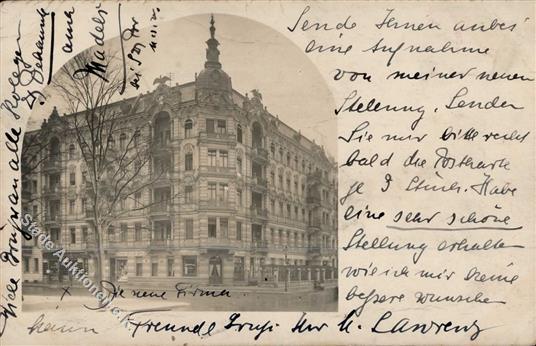 Sende Ihnen anbei
eine Aufnahme
von meiner neuen
Stellung. Senden
Sie mir bitte recht
bald die Postkarte
je 3 Stück. Habe
eine sehr schöne
Stellung erhalten
wie ich mir keine
bessere wünschen
kann
Freundl Gruß Ihr
Lawrenz
x Die neue Firma
Viele Grüße an alle Kollegen
Bekannte
und
Stade
Auktionen